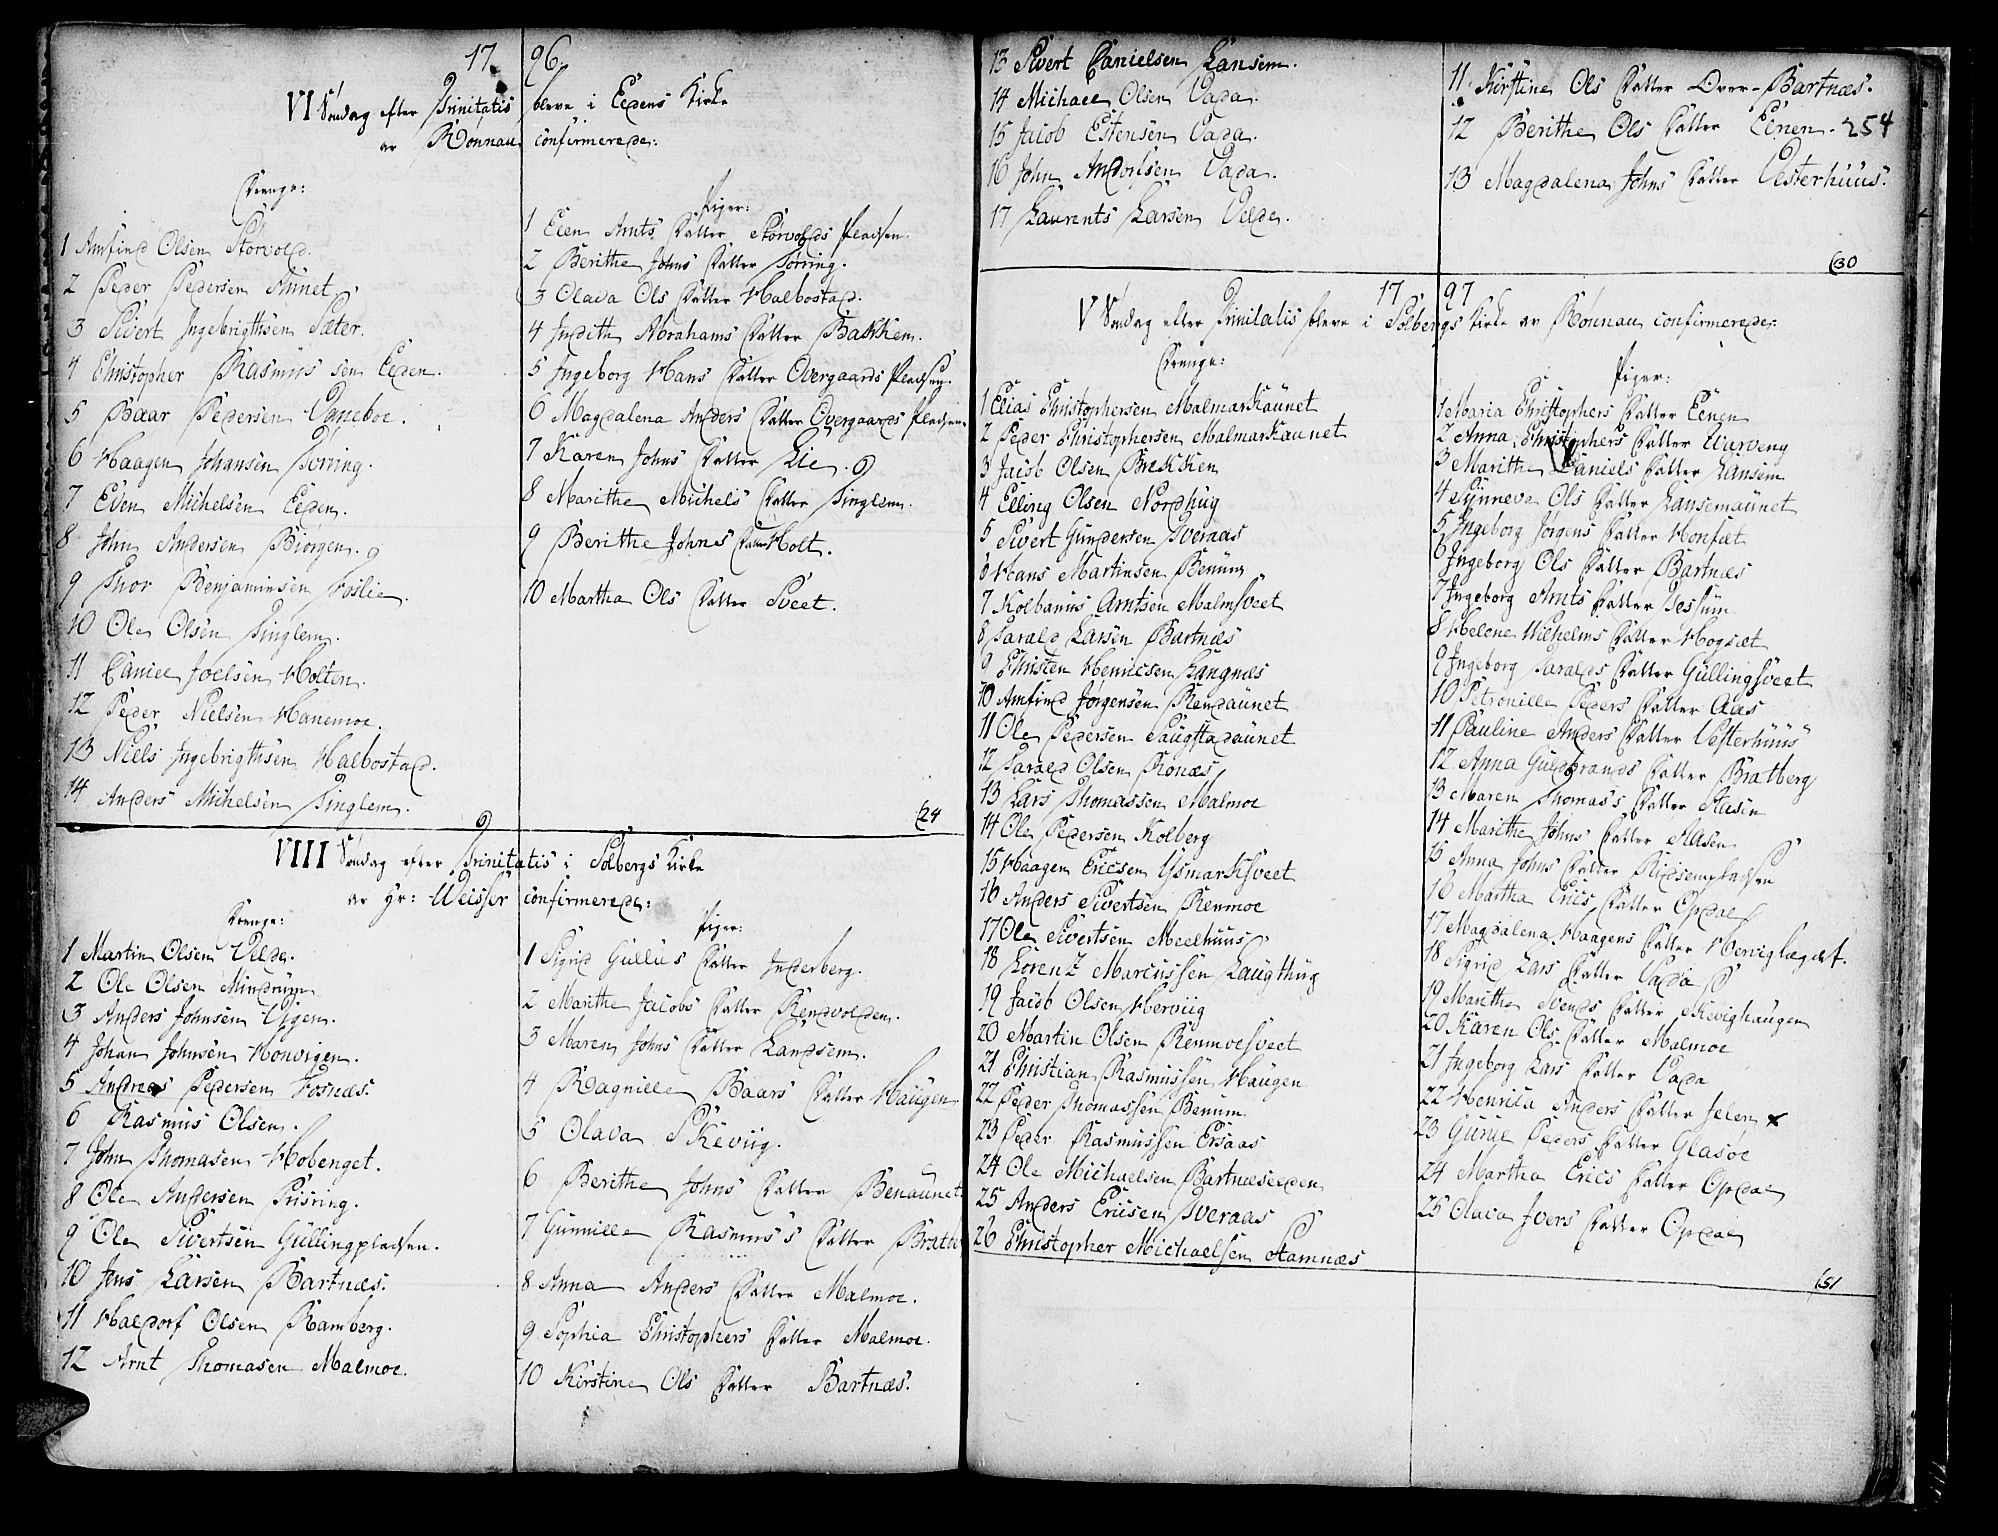 1796.
VI Søndag efter Trinitatis bleve i Eedens Kirke
av Rønnau confirmerede:
Drenge:
1 Arnfind Olsen Storvold.
2 Peder Pedersen Aünet
3 Sivert Ingebrigthsen Sæter.
4 Christopher Rasmüs sen Eeden.
5 Baar Pedersen Vaneboe.
6 Haagen Johansen Tørring.
7 Even Michelsen Eeden.
8 John Andersen Biørgen.
9 Thor Benjaminsen Foslie.
10 Ole Olsen Tinglem.
11 Daniel Joelsen Holten.
12 Peder Nielsen Hanemoe.
13 Niels Ingebrigthsen Halbostad.
14 Anders Michelsen Tinglem.
Piger:
1 Elen Arnts Datter Storvolds Pladsen.
2 Berithe Johns Datter Tørring.
3 Olava Ols Datter Halbostad.
4 Judith Abrahams Datter Bakken.
5 Ingeborg Hans Datter Overgaards Pladsen.
6 Magdalena Anders Datter Overgaards Pladsen.
7 Karen Johns Datter Lie.
8 Marithe Michels Datter Tinglem.
9 Berithe Johns Datter Holt.
10 Martha Ols Datter Sveet.
24
VIII Søndag efter Trinitatis i Solbergs Kirke
av Hr: Weisser confirmerede:
Drenge:
1 Martin Olsen Velde.
2 Ole Olsen Mindrüm
3 Anders Johnsen Vigen.
4 Johan Johnsen Honvigen.
5 Andreas Pedersen Fosnæs.
6 Rasmus Olsen.
7 John Thomasen Hobenget.
8 Ole Andersen Tüsring.
9 Ole Sivertsen Güllingpladsen.
10 Jens Larsen Bartnæs.
11 Haldorf Olsen Ramberg.
12 Arnt Thomasen Malmoe.
Piger:
1 Sigrid Güllüs Datter Inderberg.
2 Marithe Jacobs Datter Rendvolden.
3 Maren Johns Datter Landsem.
4 Ragnille Baars Datter Haügen
5 Olava Skeviig.
6 Berithe Johns Datter Benaünet
7 Gunnille Rasmus's Datter Bratb
8 Anna Anders Datter Malmoe.
9 Sophia Christophers Datter Malmoe.
10 Kirstine Ols Datter Bartnæs.
13 Sivert Danielsen Lansem.
14 Michael Olsen Vada.
15 Jacob Estensen Vada.
16 John Andorsen Vada.
17 Laurents Larsen Velde.
11 Kirstine Ols Datter Over-Bartnæs.
12 Berithe Ols Datter Einen. 254
13 Magdalena Johns Datter Vesterhüüs.
30
1797
V Søndag efter Trinitatis bleve i Solbergs Kirke av Rønnau confirmerede:
Drenge:
1 Elias Christophersen Malmarkaünet
2 Peder Christophersen Malmarkaunet
3 Jacob Olsen Brekken
4 Elling Olsen Nordhüg
5 Sivert Gündersen Tveraas
6 Hans Martinsen Benüm
7 Kolbanus Arntsen Malmsveet
8 Tarald Larsen Bartnæs
9 Christen Henricsen Langnæs
10 Arnfind Jørgensen Rendaünet
11 Ole Pedersen Saügstadaünet
12 Tarald Olsen Ronæs
13 Lars Thomassen Malmoe
14 Ole Pedersen Kolberg
15 Haagen Ericsen Ysmarksveet
16 Anders Sivertsen Renmoe
17 Ole Sivertsen Meelhüüs
18 Lorenz Marcussen Laügthüg
19 Jacob Olsen Herviig
20 Martin Olsen Renmoesveet
21 Christian Rasmussen Haügen
22 Peder Thomassen Benüm
23 Peder Rasmussen Ersaas
24 Ole Michaelsen Bartnæseiden
25 Anders Ericsen Tveraas
26 Christopher Michaelsen Stamnæs
Piger:
1 Maria Christophers Datter Eenen
2 Anna Christophers Datter Warveng
3 Marithe Daniels Datter Lansem
4 Synneva Ols Datter Lansemaünet
5 Ingeborg Jørgens Datter Honsæt
6 Ingeborg Ols Datter Bartnæs
7 Ingeborg Arnts Datter Tessüm
8 Helene Wilhelms Datter Hogsæt
9 Ingeborg Taralds Datter Güllingsveet
10 Petronille Peders Datter Aas
11 Pauline Anders Datter Vesterhüüs
12 Anna Guldbrands Datter Bratberg
13 Maren Thomas's Datter Aasen
14 Marithe Johns Datter Aasen
15 Anna Johns Datter
16 Martha Erics Datter Opdal
17 Magdalena Haagens Datter Herviglægdet.
18 Sigrid Lars Datter Vada
19 Marithe Svends Datter Skevighaügen
20 Karen Ols Datter Malmoe
21 Ingeborg Lars Datter Vada
22 Henrica Anders Datter Jelen
23 Gurue Peders Datter Glasøe
24 Martha Erics Datter Opdal
25 Olava Ivers Datter Opdal
51